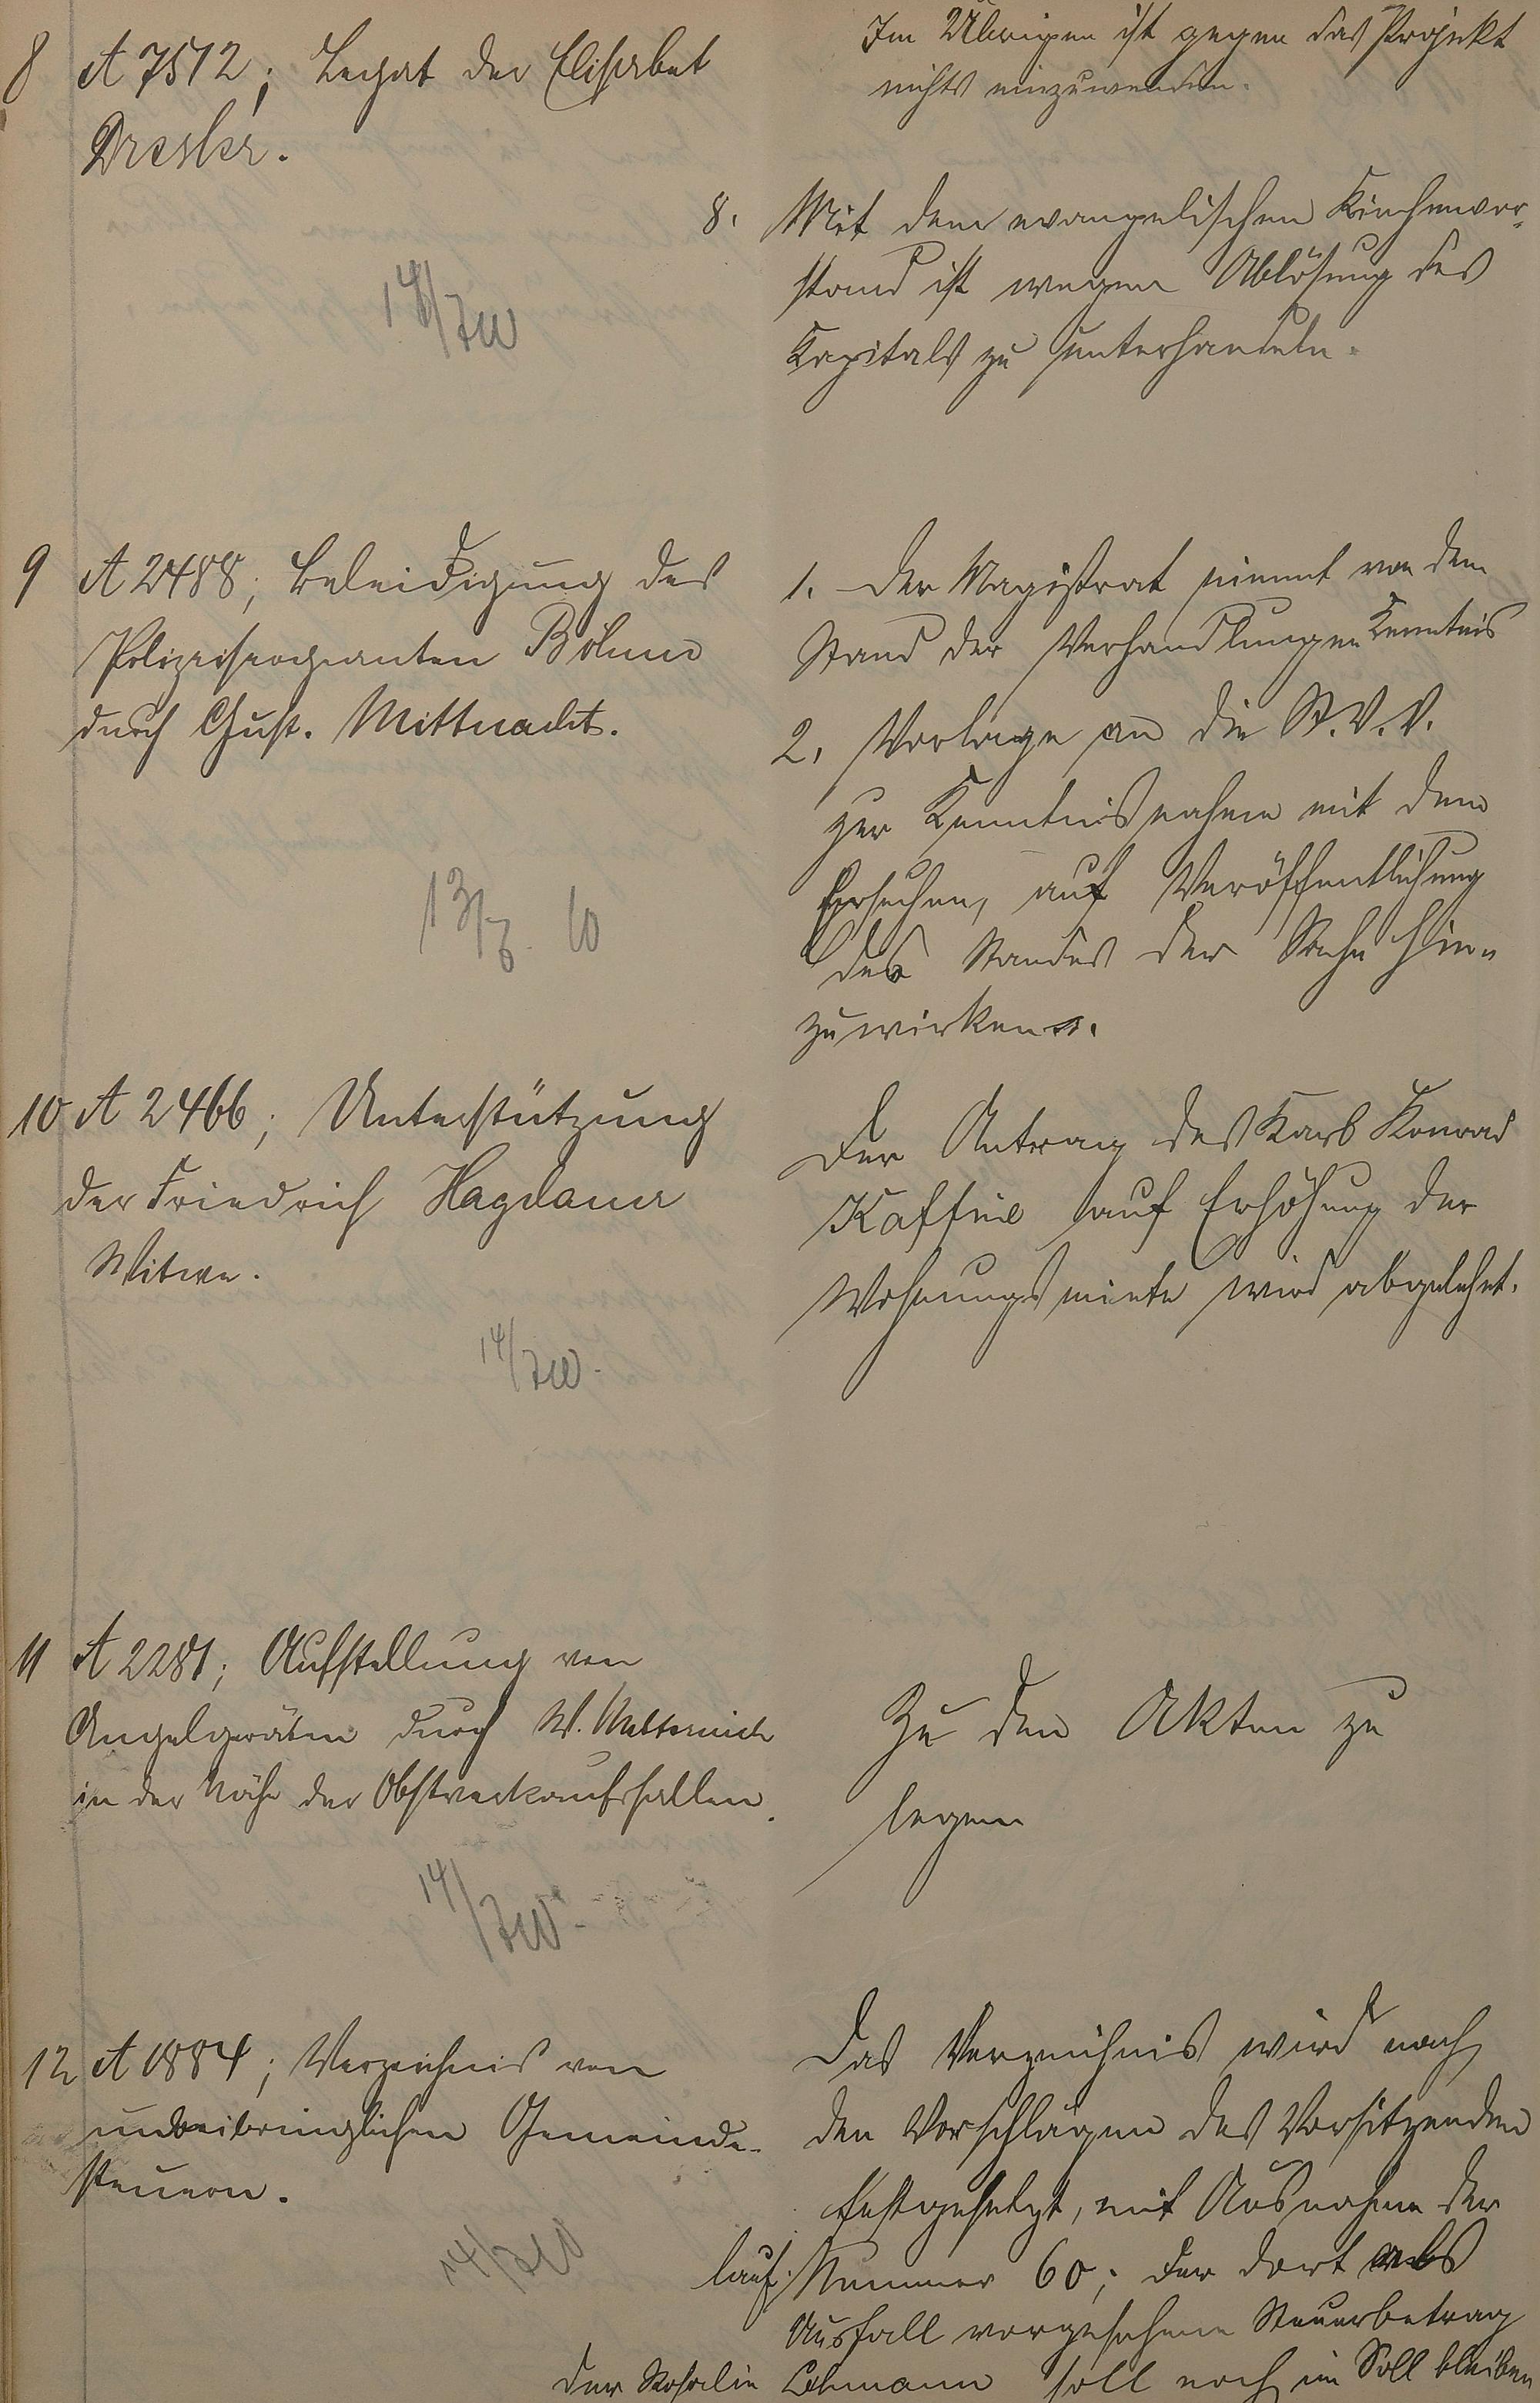 Im Übrigen ist gegen das Projekt
nichts einzuwenden.
8 A 7512; Legat der Elisabet
Dresler.
14/7 10
8. Mit dem evangelischen Kirchenvor-
stand ist wegen Ablösung des
Kapitals zu unterhandeln.
9 A 2488; Beleidigung des
Polizeisergeanten Böhm
durch Gust. Mittnacht.
13/7. 10
1. Der Magistrat nimmt von dem
Stand der Verhandlungen Kenntnis
2. Vorlage an die St. V. V.
zur Kenntnisnahme mit dem
Ersuchen, auf Veröffentlichung
des Standes der Sache hin-
zuwirken.
10 A 2466; Unterstützung
der Friedrich Hagdauer
Witwe.
14/7 10.
Der Antrag des Karl Konrad
auf Erhöhung der
Wohnungsmiete wird abgelehnt.
11 A 2281; Aufstellung von
Angelgeräten durch W.
in der Nähe der Obstverkaufshallen.
14/7 10.
Zu den Akten zu
legen
12 A 1884; Verzeichnis von
unbeibringlichen Gemeinde-
steuern.
14/7 10
Das Verzeichnis wird nach
den Vorschlägen des Vorsitzenden
festgesetzt, mit Ausnahme der
lauf. Nummer 60; der dort als
Ausfall vorgesehene Steuerbetrag
der Rosalie Lehmann soll noch im Soll bleiben